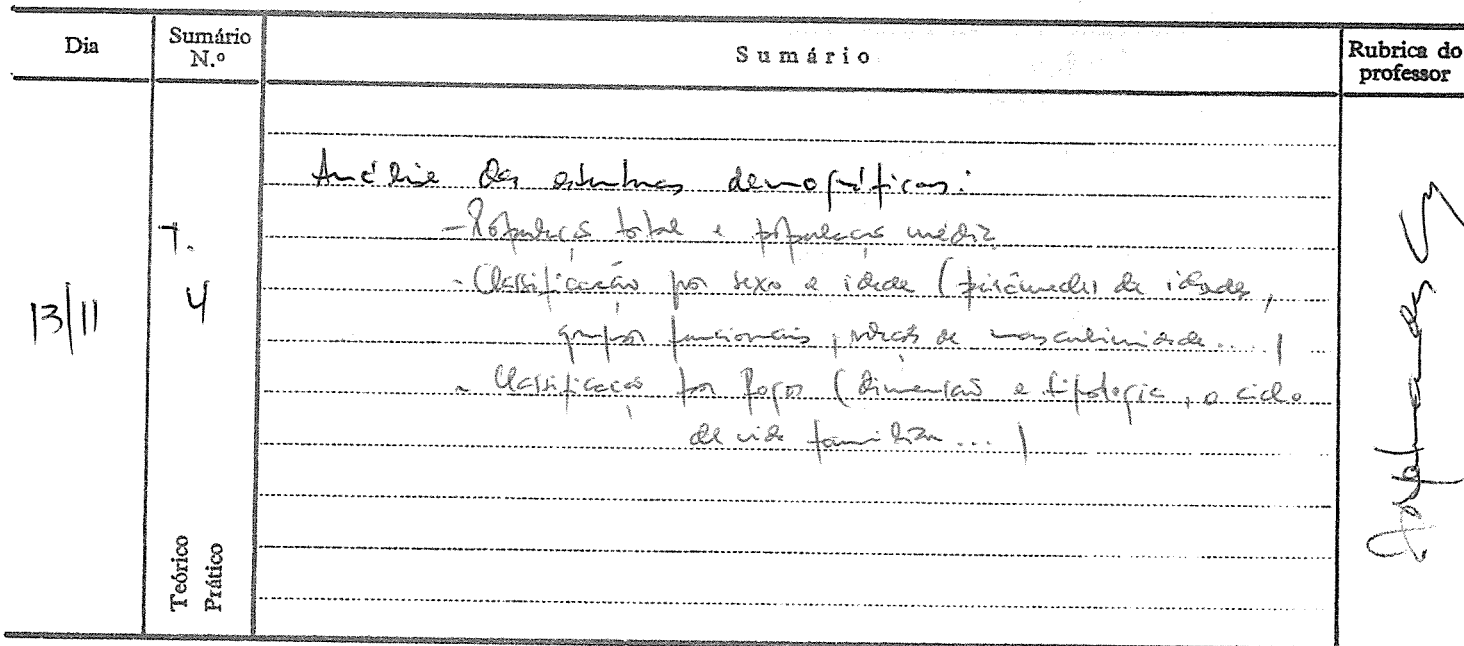 Dia
Sumário N.º
Sumário
Rubrica do professor
13/11
T.
4
Análise das estruturas demográficas:
- População total e população média
- Classificação por sexo e idade (pirâmides de idades,
grupos funcionais, relação de masculinidade....)
- Classificação por fogos (dimensão e tipologia, o ciclo
de vida familiar...)
Teórico
Prático